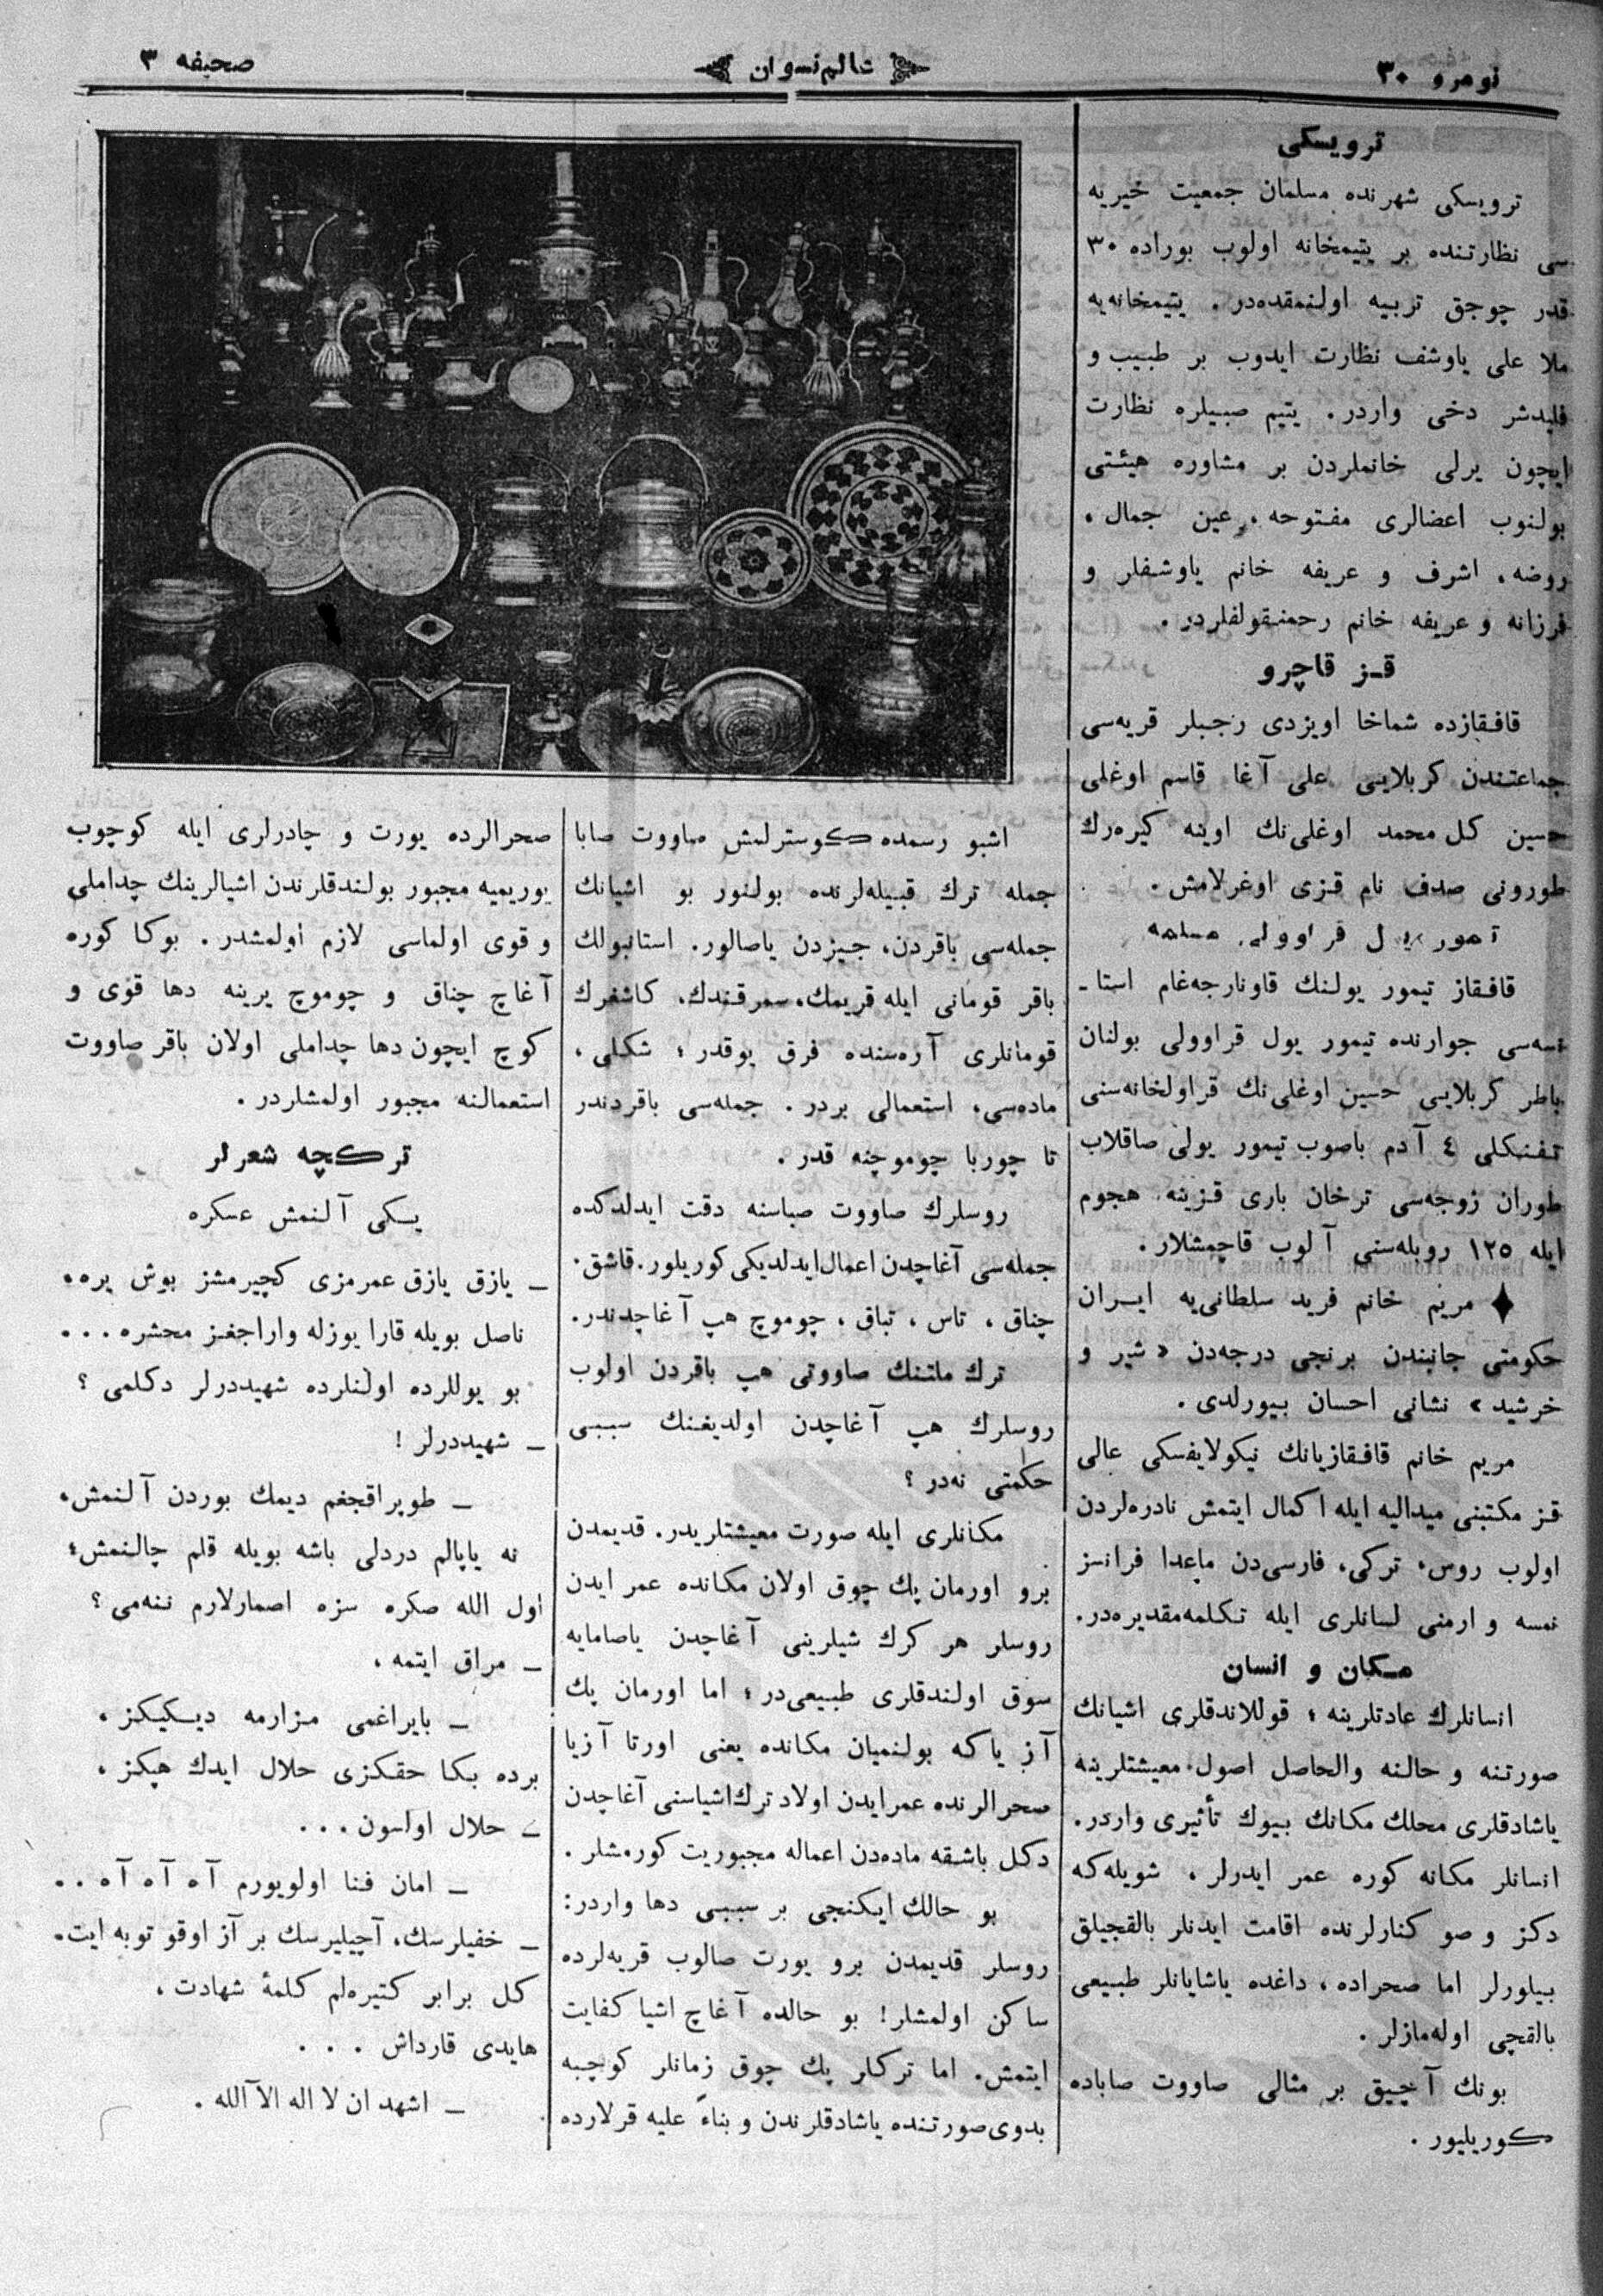 نومرو ٣٠
عالم نسوان
صحیفه ٣
ترویسكی
ترویسكی شهرنده مسلمان جمعیت خیریه
سی نظارتنده بر یتیمخانه اولوب بوراده ٣٠
قدر چوجق تربیه اولنمقده‌در . یتیمخانه‌یه
ملا علی یاوشف نظارت ایدوب بر طبیب و
فلیدشر دخی واردر. یتیم صبیلره نظارت
ایچون یرلی خانملردن بر مشاوره هیئتی
بولنوب اعضالری مفتوحه، عین جمال،
روضه، اشرف و عریفه خانم یاوشفلر و
فرزانه و عریفه خانم رحمنقولفلردر.
قـز قاچرو
قافقازده شماخا اویزدی رجبلر قریه‌سی
جماعتندن كربلایی علی آغا قاسم اوغلی
حسین كل محمد اوغلی‌نك اوینه كیره‌رك
طورونی صدف نام قزی اوغرلامش.
تیمور یول قراوولی
قافقاز تیمور یولنك قاونارجه‌غام استا ـ
نسه‌سی جوارنده تیمور یول قراوولی بولنان
باطر كربلایی حسین اوغلی‌نك قراولخانه‌سنی
تفنكلی ٤ آدم باصوب تیمور یولی صاقلاب
طوران زوجه‌سی ترخان باری قزینه هجوم
ایله ١٢٥ روبله‌سنی آلوب قاچمشلار.
مریم خانم فرید سلطانی‌یه ایـران
حكومتی جانبندن برنجی درجه‌دن « شیر و
خرشید » نشانی احسان بیورلدی.
مریم خانم قافقازیانك نیكولایفسكی عالی
قز مكتبنی میدالیه ایله اكمال ایتمش نادره‌لردن
اولوب روس، تركی، فارسی‌دن ماعدا فرانسز
نمسه و ارمنی لسانلری ایله تكلمه‌مقدیره‌در.
مـكان و انسان
انسانلرك عادتلرینه ؛ قوللاندقلری اشیانك
صورتنه و حالنه والحاصل اصول معیشتلرینه
یاشادقلری محلك مكانك بیوك تأثیری واردر.
انسانلر مكانه كوره عمر ایدرلر ، شویله‌كه
دكز و صو كنارلرنده اقامت ایدنلر بالقجیلق
بیلورلر اما صحراده ، داغده یاشایانلر طبیعی
بالقچی اوله‌مازلر .
بونك آچیق بر مثالی صاووت صاباده
كوریلیور .
اشبو رسمده كوسترلمش صاووت صابا
جمله ترك قبیله‌لرنده بولنور بو اشیانك
جمله‌سی باقردن، جیزدن یاصالور. استانبولك
باقر قومانی ایله قریمك، سمرقندك، كاشغرك
قومانلری آره‌سنده فرق یوقدر ؛ شكلی ،
ماده‌سی، استعمالی بردر. جمله‌سی باقردندر
تا چوربا چوموچنه قدر.
روسلرك صاووت صباسنه دقت ایدلدكده
جمله‌سی آغاچدن اعمال ایدلدیكی كوریلور. قاشق،
چناق ، تاس ، تباق ، چوموچ هپ آغاچدندر.
ترك ملتنك صاووتی هپ باقردن اولوب
روسلرك هپ آغاچدن اولدیغنك سببی
حكمتی نه‌در ؟
مكانلری ایله صورت معیشتلریدر. قدیمدن
برو اورمان پك چوق اولان مكانده عمر ایدن
روسلر هر كرك شیلرینی آغاچدن یاصامایه
سوق اولندقلری طبیعی‌در ؛ اما اورمان پك
آز یا كه بولنمیان مكانده یعنی اورتا آزیا
صحرالرنده عمر ایدن اولاد ترك اشیاسنی آغاچدن
دكل باشقه ماده‌دن اعماله مجبوریت كورمشلر.
بو حالك ایكنجی بر سببی دها واردر:
روسلر قدیمدن برو یورت صالوب قریه‌لرده
ساكن اولمشلر! بو حالده آغاچ اشیا كفایت
ایتمش. اما تركلر پك چوق زمانلر كوچبه
بدوی صورتنده یاشادقلرندن و بناءً علیه قرلارده
صحرالرده یورت و چادرلری ایله كوچوب
یوریمیه مجبور بولندقلرندن اشیالرینك چداملی
و قوی اولماسی لازم اولمشدر. بوكا كوره
آغاچ چناق و چوموچ یرینه دها قوی و
كوچ ایچون دها چداملی اولان باقر صاووت
استعمالنه مجبور اولمشلردر.
تركچه شعرلر
یـكی آلنمش عسكره
ـ یازق یازق عمرمزی كچیرمشز بوش یره،
ناصل بویله قارا یوزله واراجغز محشره...
بو یوللرده اولنلرده شهیددرلر دكلمی ؟
ـ شهیددرلر !
ـ طوپراقجغم دیمك بوردن آلنمش،
نه یاپالم دردلی باشه بویله قلم چالنمش؛
اول الله صكره سزه اصمارلارم ننه‌می ؟
ـ مراق ایتمه ،
ـ بایراغمی مزارمه دیـكیكز ،
برده بكا حقكزی حلال ایدك هپكز ،
ـ حلال اولسون ...
ـ امان فنا اولویورم آه آه آه ..
ـ خفیلرسك، آچیلیرسك بر آز اوقو توبه ایت.
كل برابر كتیره‌لم كلمهٔ شهادت ،
هایدی قارداش ...
ـ اشهد ان لا اله الا آلله .